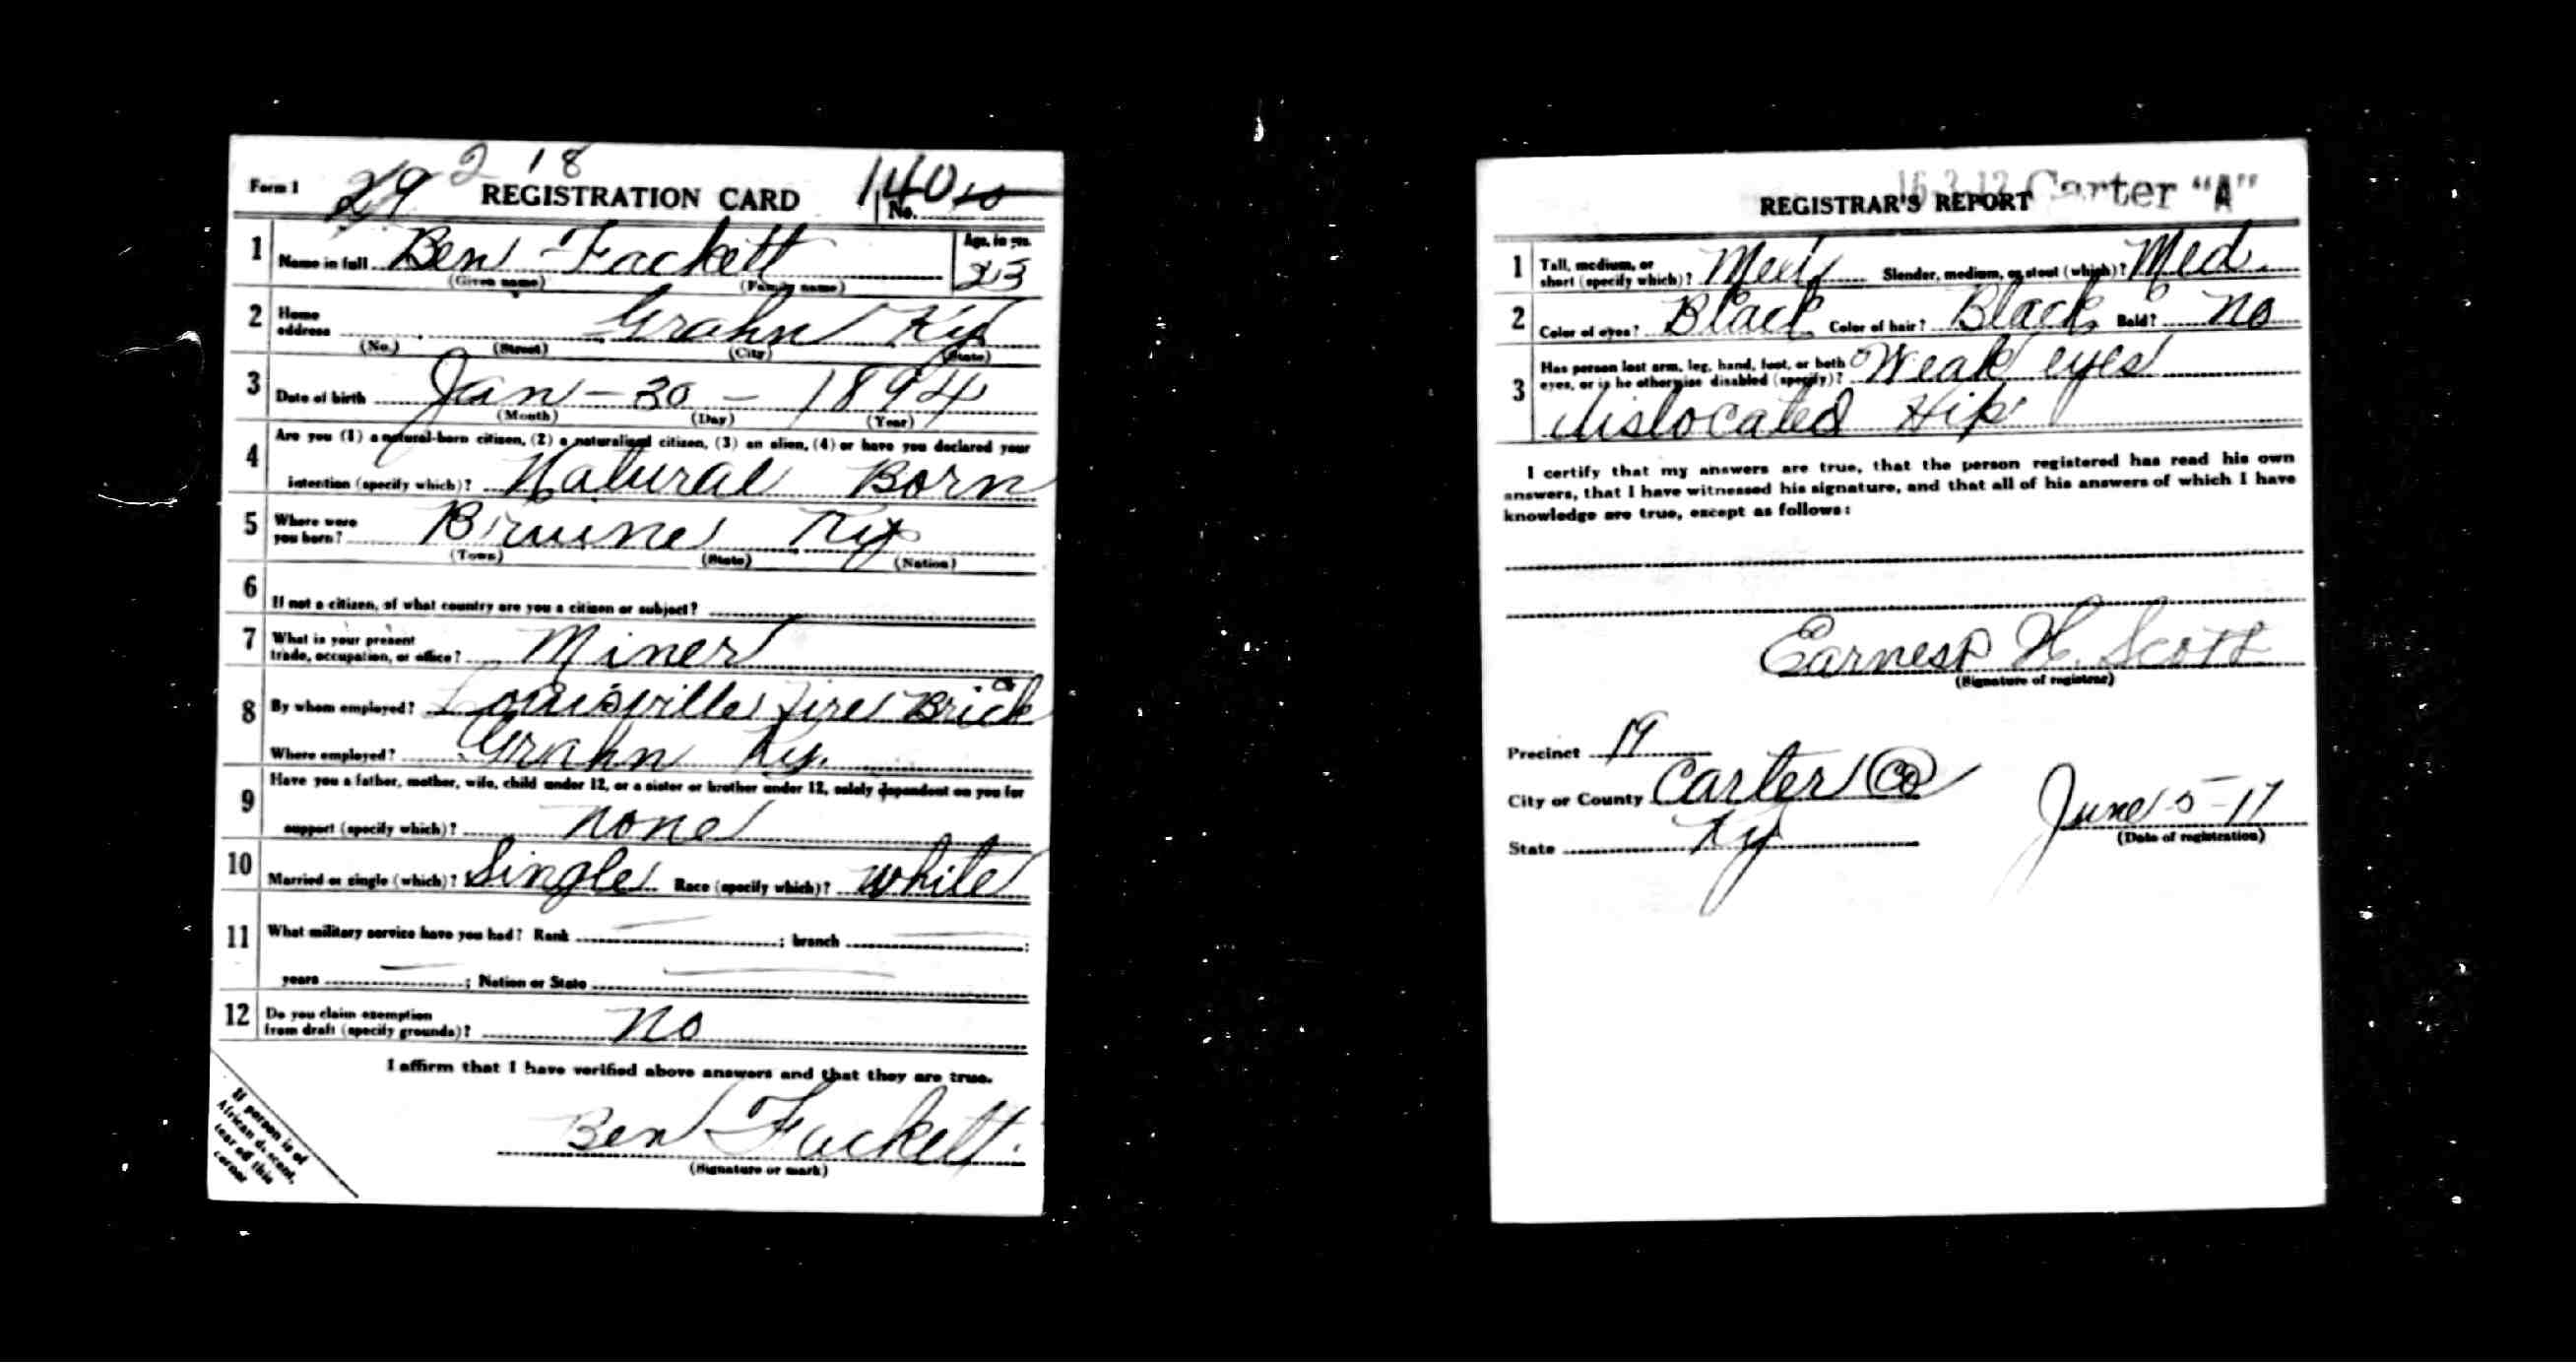 2 18
Form 1 29 REGISTRATION CARD No. 140
1 Name in full Ben Fackett Age, in yrs. 23
(Given name) (Family name)
2 Home address Grahn Ky
(No.) (Street) (City) (State)
3 Date of birth Jan - 30 - 1894
(Month) (Day) (Year)
4 Are you (1) a natural-born citizen, (2) a naturalized citizen, (3) an alien, (4) or have you declared your
intention (specify which)? Natural Born
5 Where were you born? Ky
(Town) (State) (Nation)
6 If not a citizen, of what country are you a citizen or subject?
7 What is your present trade, occupation, or office? Miner
8 By whom employed? Louisville Fire Brick
Where employed? Grahn Ky.
9 Have you a father, mother, wife, child under 12, or a sister or brother under 12, solely dependent on you for
support (specify which)? none
10 Married or single (which)? Single Race (specify which)? White
11 What military service have you had? Rank — ; branch — ;
years — ; Nation or State —
12 Do you claim exemption from draft (specify grounds)? No
I affirm that I have verified above answers and that they are true.
Ben Fackett.
(Signature or mark)
If person is of
African descent,
tear off this
corner
Carter "A"
REGISTRAR'S REPORT
1 Tall, medium, or short (specify which)? Med Slender, medium, or stout (which)? Med.
2 Color of eyes? Black Color of hair? Black Bald? No
3 Has person lost arm, leg, hand, foot, or both eyes, or is he otherwise disabled (specify)? Weak eyes
dislocated Hip
I certify that my answers are true, that the person registered has read his own
answers, that I have witnessed his signature, and that all of his answers of which I have
knowledge are true, except as follows:
Earnest H. Scott
(Signature of registrar)
Precinct 19
City or County Carter Co
State Ky
June 5-17
(Date of registration)